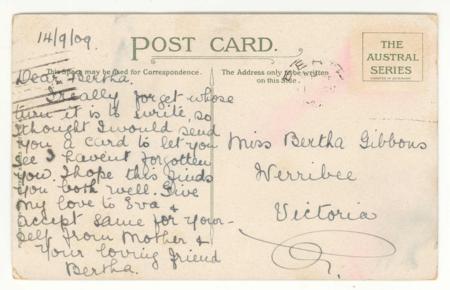 14/9/09.
POST CARD.
THE
AUSTRAL
SERIES
This Space may be used for Correspondence.
The Address only to be written
on this Side.
Dear Bertha.
I really forget whose
turn it is to write, so
thought I would send
you a card to let you
see I havent forgotten
you. I hope this finds
you both well. Give
my love to Eva &
accept same for your-
self from Mother &
Your loving friend
Bertha.
Miss Bertha Gibbons
Werribee
Victoria